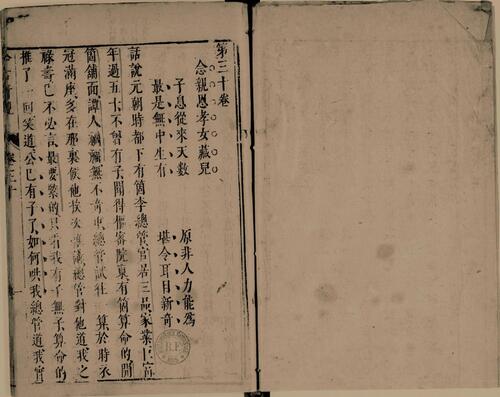 第三十卷
念親恩孝女藏兒
子息從來天數　原非人力能爲
最是無中生有　堪令耳目新奇
話說元朝時都下有箇李總管官居三品家業巨富
年過五十不曾有子聞得樞密院東有箇算命的開
箇鋪面譚人禍福無不奇中總管試往一算於時衣
冠滿座多在那裏候他挨次推講總管對他道我之
祿壽已不必言最要緊的只看我有子無子算命的
推了一回笑道公已有子了如何哄我總管道我實
卷三十